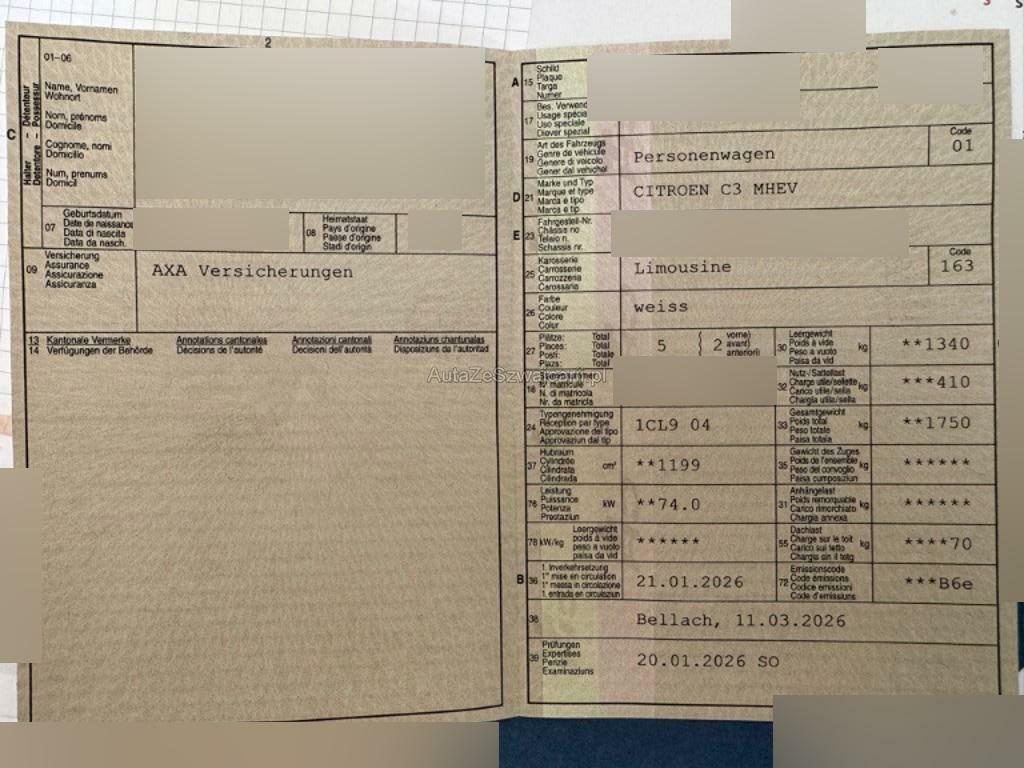 2
01-06
C
Halter – Détenteur
Detentore – Possessur
Name, Vornamen
Wohnort
Nom, prénoms
Domicile
Cognome, nomi
Domicilio
Num, prenums
Domicil
07
Geburtsdatum
Date de naissance
Data di nascita
Data da nasch.
08
Heimatstaat
Pays d'origine
Paese d'origine
Stadi d'origin
09
Versicherung
Assurance
Assicurazione
Assicuranza
AXA Versicherungen
13 Kantonale Vermerke Annotations cantonales Annotazioni cantonali Annotaziuns chantunalas
14 Verfügungen der Behörde Décisions de l'autorité Decisioni dell'autorità Disposiziuns da l'autoritad
AutaZeSzwajcarii.pl
A 15
Schild
Plaque
Targa
Numer
17
Bes. Verwend
Usage spécia
Uso speciale
Diever spezial
19
Art des Fahrzeugs
Genre de véhicule
Genere di veicolo
Gener dal vehichel
Personenwagen
Code
01
D 21
Marke und Typ
Marque et type
Marca e tipo
Marca e tip
CITROEN C3 MHEV
E 23
Fahrgestell-Nr.
Châssis no
Telaio n.
Schassis nr.
25
Karosserie
Carrosserie
Carrozzeria
Carossaria
Limousine
Code
163
26
Farbe
Couleur
Colore
Colur
weiss
27
Plätze: Total
Places: Total
Posti: Totale
Plazs: Total
5
2
vorne)
avant)
anteriori)
30
Leergewicht
Poids à vide
Peso a vuoto
Paisa da vid
kg
**1340
18
Stammnummer
N° matricule
N. di matricola
Nr. da matricla
32
Nutz-/Sattellast
Charge utile/sellette
Carico utile/sella
Chargia utila/sella
kg
***410
24
Typengenehmigung
Réception par type
Approvazione del tipo
Approvaziun dal tip
1CL9 04
33
Gesamtgewicht
Poids total
Peso totale
Paisa totala
kg
**1750
37
Hubraum
Cylindrée
Cilindrata
Cilindrada
cm³
**1199
35
Gewicht des Zuges
Poids de l'ensemble
Peso del convoglio
Paisa cumposiziun
kg
******
76
Leistung
Puissance
Potenza
Prestaziun
kW
**74.0
31
Anhängelast
Poids remorquable
Carico rimorchiato
Chargia annexa
kg
******
78 kW/kg
Leergewicht
poids à vide
peso a vuoto
paisa da vid
******
55
Dachlast
Charge sur le toit
Carico sul tetto
Chargia sin il tetg
kg
****70
B 36
1. Inverkehrsetzung
1re mise en circulation
1a messa in circolazione
1. entrada en circulaziun
21.01.2026
72
Emissionscode
Code émissions
Codice emissioni
Code d'emissiuns
***B6e
38
Bellach, 11.03.2026
39
Prüfungen
Expertises
Perizie
Examinaziuns
20.01.2026 SO